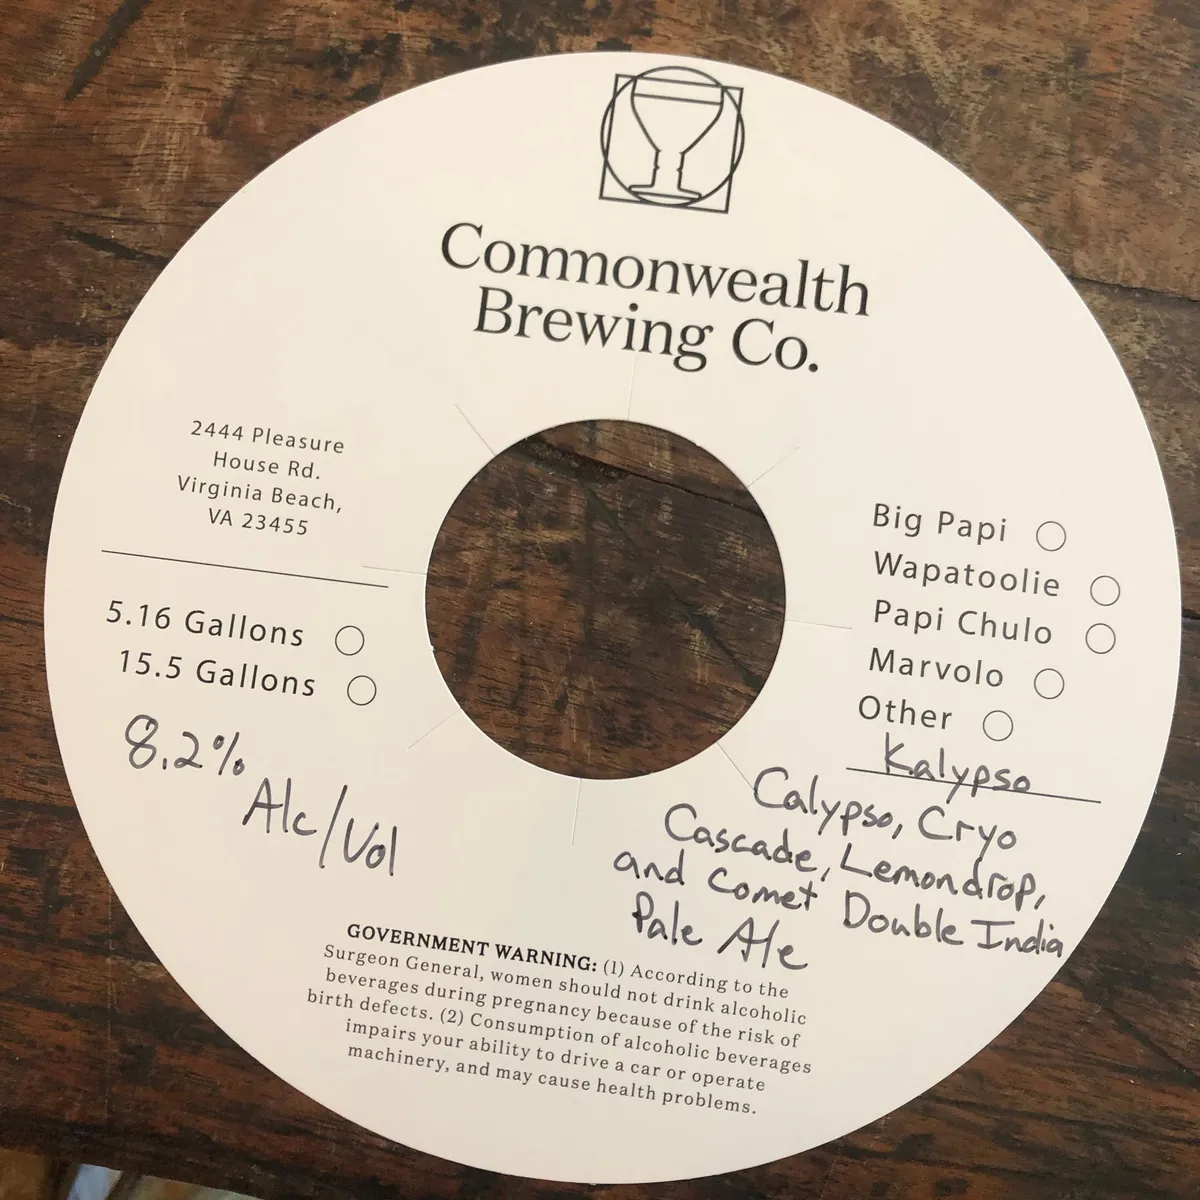 Commonwealth
Brewing Co.
2444 Pleasure
House Rd.
Virginia Beach,
VA 23455
5.16 Gallons
15.5 Gallons
8.2%
Alc/Vol
Big Papi
Wapatoolie
Papi Chulo
Marvolo
Other
Kalypso
Calypso, Cryo
Cascade, Lemondrop,
and Comet Double India
Pale Ale
GOVERNMENT WARNING: (1) According to the
Surgeon General, women should not drink alcoholic
beverages during pregnancy because of the risk of
birth defects. (2) Consumption of alcoholic beverages
impairs your ability to drive a car or operate
machinery, and may cause health problems.